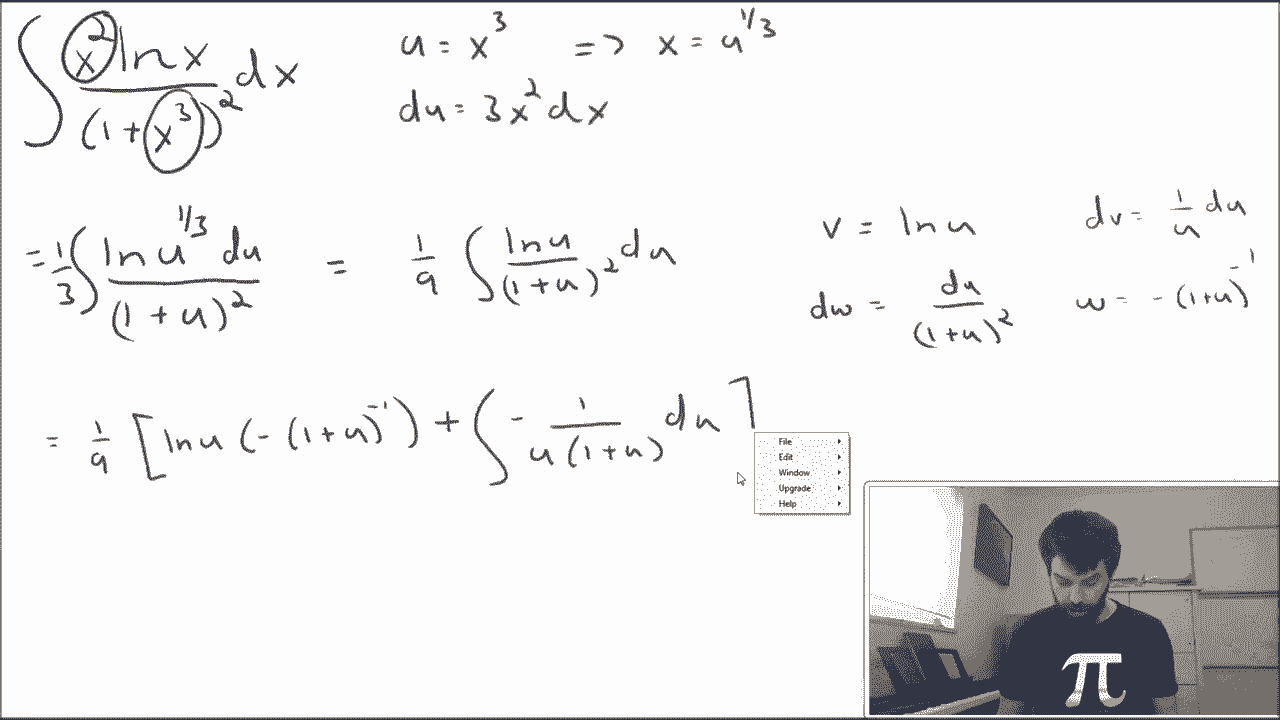 ∫ x² ln x / (1 + x³)² dx
u = x³ => x = u^(1/3)
du = 3x² dx
= 1/3 ∫ ln u^(1/3) du / (1 + u)² = 1/9 ∫ ln u / (1 + u)² du
v = ln u dv = 1/u du
dw = du / (1+u)² w = - (1+u)^-1
= 1/9 [ ln u (- (1+u)^-1) + ∫ - 1 / u(1+u) du ]
File
Edit
Window
Upgrade
Help
π